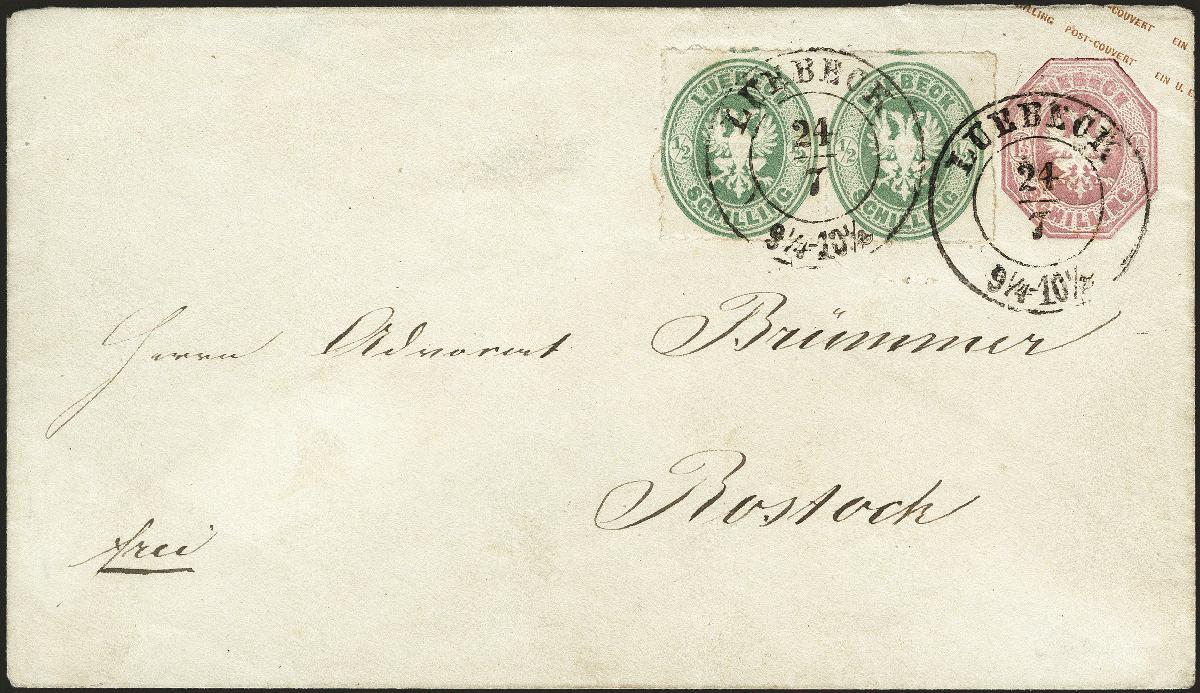 ILLING POST-COUVERT EIN
-COUVERT EIN U. E
LUEBECK
1/2
SCHILLING
LUEBECK
1/2
SCHILLING
LUEBECK
SCHILLING
LUEBECK
24
7
9¼-10½
LUEBECK
24
7
9¼-10½
Herrn Advocat Brümmer
Rostock
frei